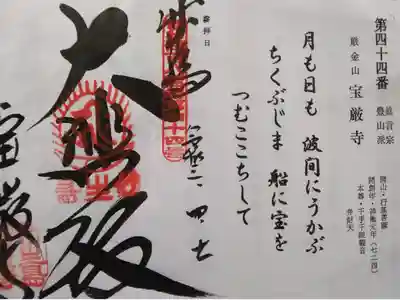 第四十四番 真言宗
豊山派
巌金山 宝厳寺
開山・行基菩薩
開創年・神亀元年(七二四)
本尊・千手千眼観音
弁財天
月も日も 波間にうかぶ
ちくぶじま 船に宝を
つむここちして
参拝日
奉拝
大悲殿
宝厳寺